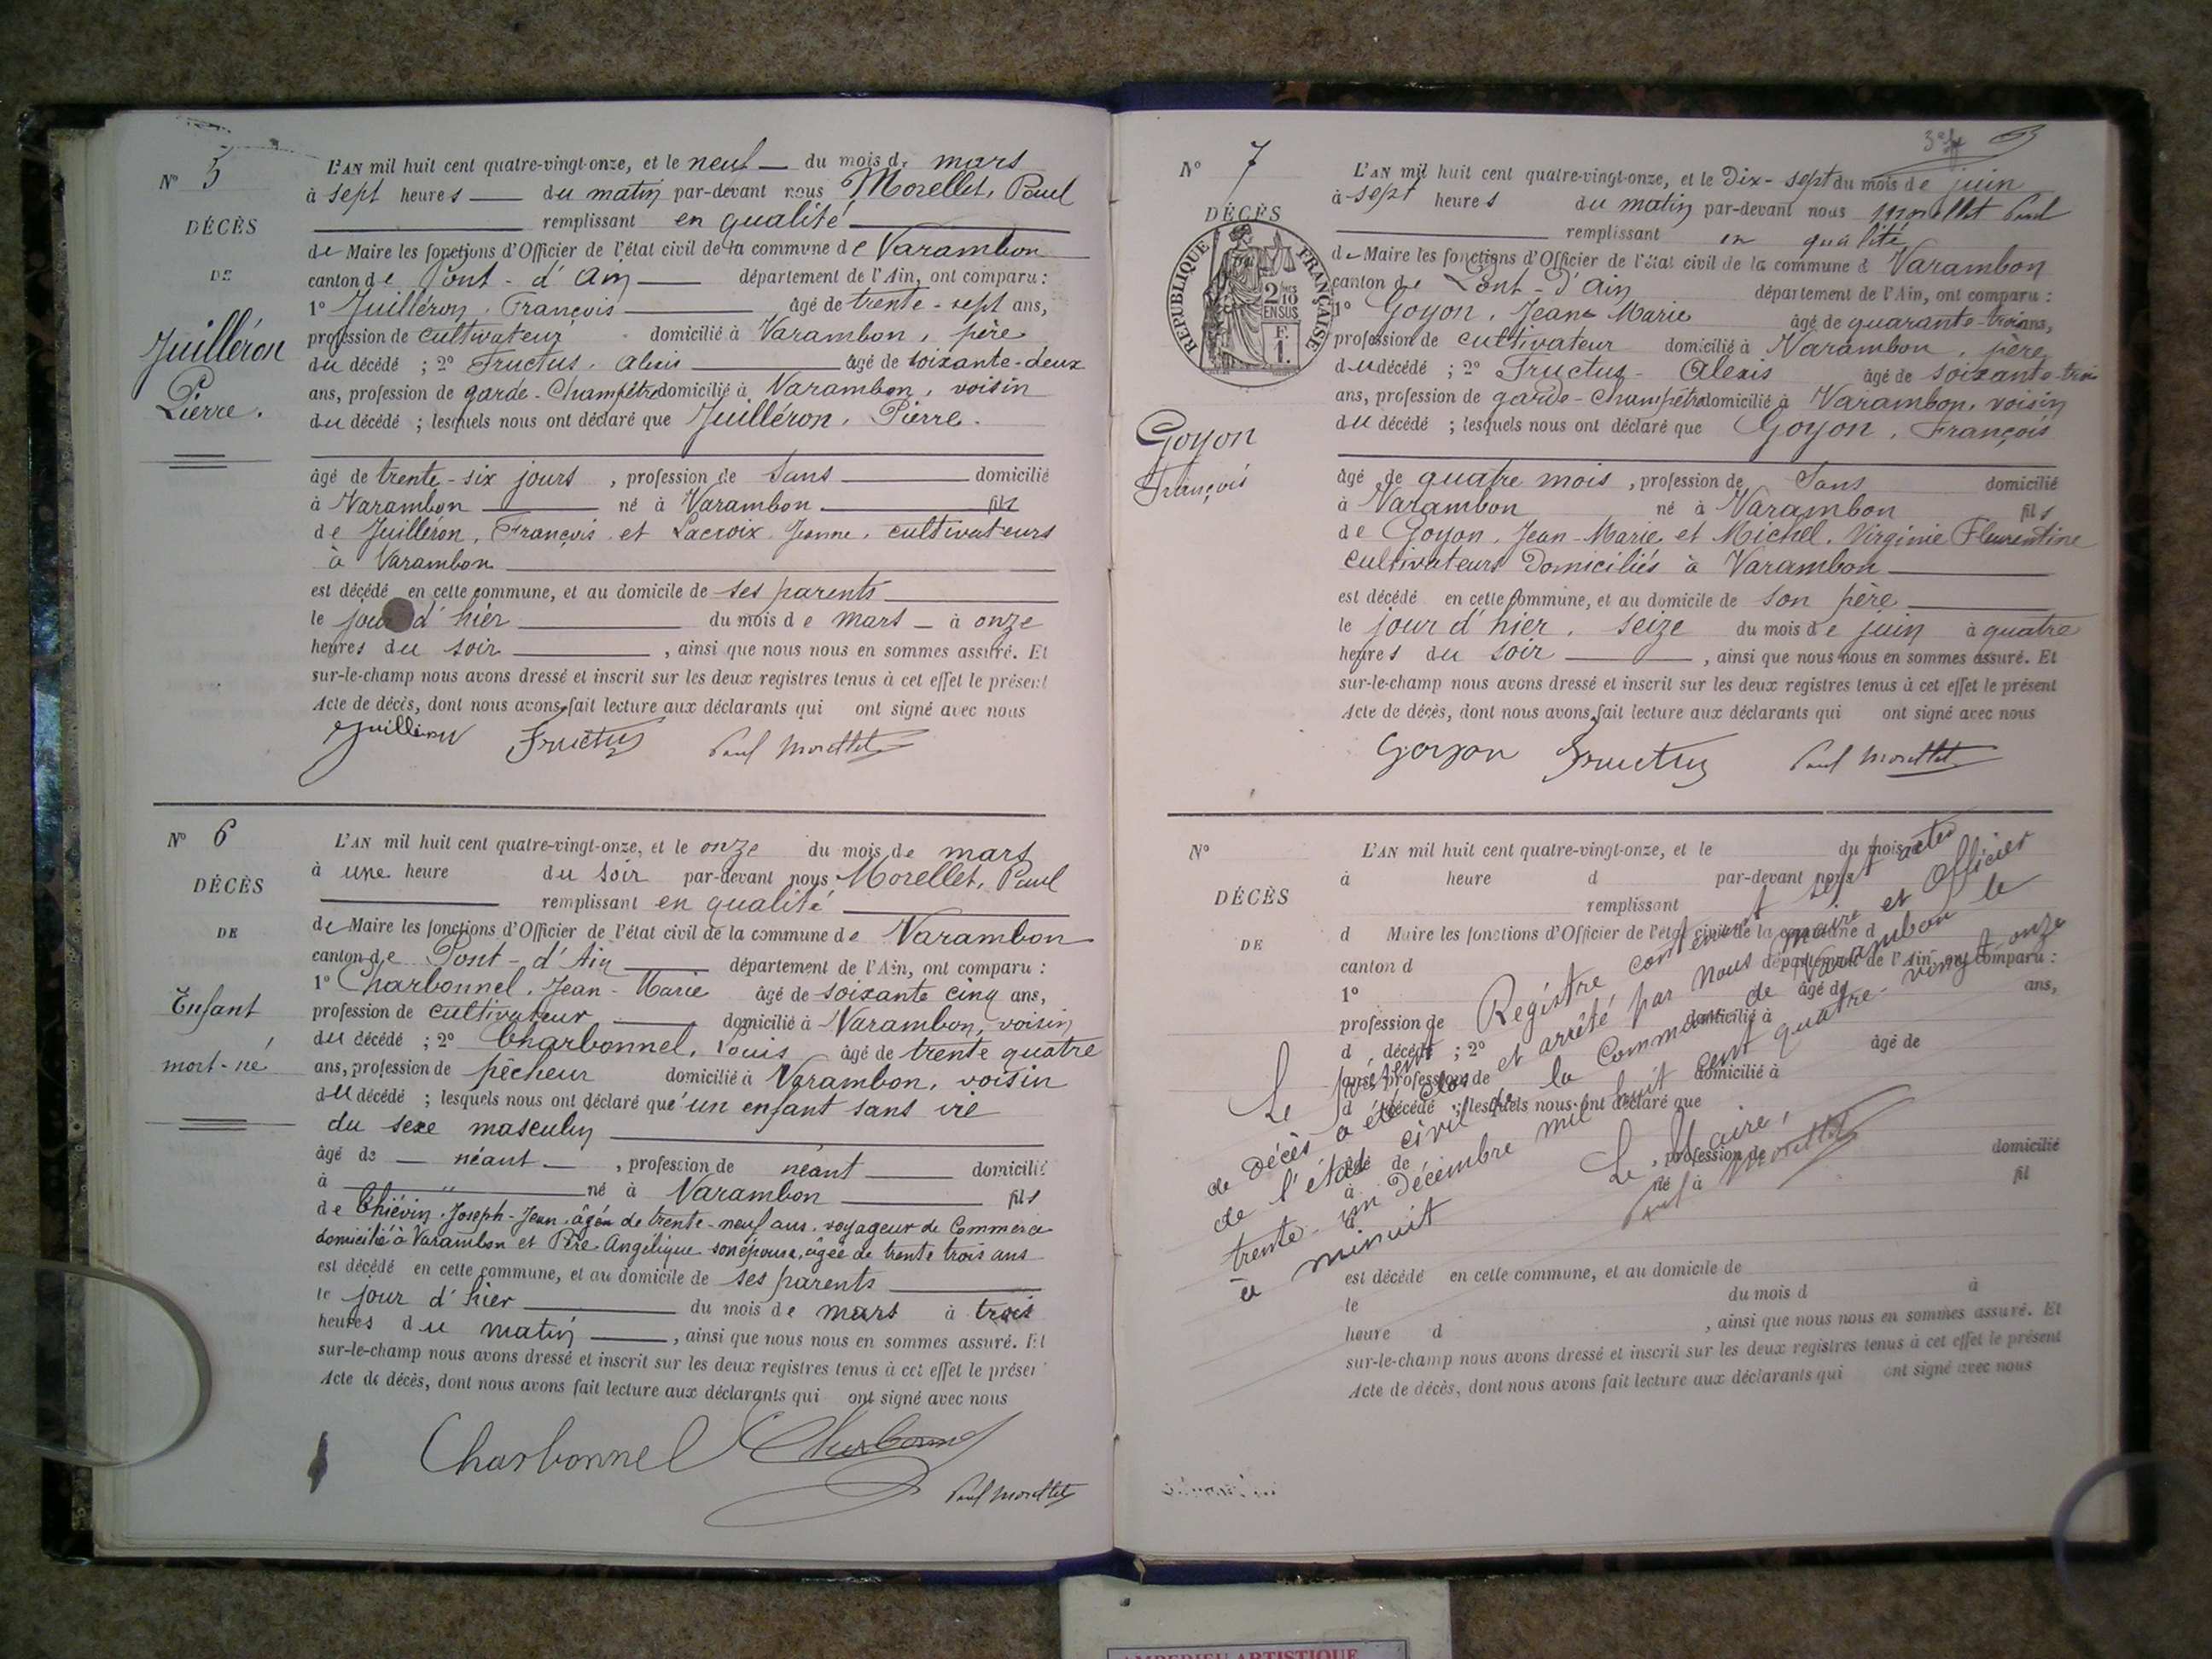 N° 5
DÉCÈS
DE
Juilléron
Pierre.
L'AN mil huit cent quatre-vingt-onze, et le neuf du mois de mars
à sept heures du matin par-devant nous Morellet, Paul
remplissant en qualité
de Maire les fonctions d'Officier de l'état civil de la commune de Varambon
canton de Pont-d'Ain département de l'Ain, ont comparu :
1° Juilléron, François âgé de trente-sept ans,
profession de cultivateur domicilié à Varambon, père
du décédé ; 2° Fructus, Alexis âgé de soixante-deux
ans, profession de garde-Champêtre domicilié à Varambon, voisin
du décédé ; lesquels nous ont déclaré que Juilléron, Pierre.
âgé de trente-six jours, profession de Sans domicilié
à Varambon né à Varambon fils
de Juilléron, François et Lacroix Jeanne, cultivateurs
à Varambon
est décédé en cette commune, et au domicile de ses parents
le jour d'hier du mois de mars à onze
heures du soir, ainsi que nous nous en sommes assuré. Et
sur-le-champ nous avons dressé et inscrit sur les deux registres tenus à cet effet le présent
Acte de décès, dont nous avons fait lecture aux déclarants qui ont signé avec nous
Juilleron Fructus Paul Morellet
N° 6
DÉCÈS
DE
Enfant
mort-né
L'AN mil huit cent quatre-vingt-onze, et le onze du mois de mars
à une heure du soir par-devant nous Morellet, Paul
remplissant en qualité
de Maire les fonctions d'Officier de l'état civil de la commune de Varambon
canton de Pont-d'Ain département de l'Ain, ont comparu :
1° Charbonnel, Jean-Marie âgé de soixante cinq ans,
profession de cultivateur domicilié à Varambon, voisin
du décédé ; 2° Charbonnel, Louis âgé de trente quatre
ans, profession de pêcheur domicilié à Varambon, voisin
du décédé ; lesquels nous ont déclaré qu'un enfant sans vie
du sexe masculin
âgé de néant, profession de néant domicilié
à né à Varambon fils
de Thiévin, Joseph-Jean, âgé de trente-neuf ans, voyageur de Commerce
domicilié à Varambon et Angélique son épouse, âgée de trente trois ans
est décédé en cette commune, et au domicile de ses parents
le jour d'hier du mois de mars à trois
heures du matin, ainsi que nous nous en sommes assuré. Et
sur-le-champ nous avons dressé et inscrit sur les deux registres tenus à cet effet le présent
Acte de décès, dont nous avons fait lecture aux déclarants qui ont signé avec nous
Charbonnel Charbonnel
Paul Morellet
N° 7
DÉCÈS
RÉPUBLIQUE FRANÇAISE
2/10 EN SUS
Goyon
François
L'AN mil huit cent quatre-vingt-onze, et le Dix-sept du mois de juin
à sept heures du matin par-devant nous Morellet Paul
remplissant en qualité
de Maire les fonctions d'Officier de l'état civil de la commune d Varambon
canton de Pont-d'Ain département de l'Ain, ont comparu :
1° Goyon, Jean Marie âgé de quarante-trois ans,
profession de cultivateur domicilié à Varambon, père
du décédé ; 2° Fructus Alexis âgé de soixante-trois
ans, profession de garde-Champêtre domicilié à Varambon, voisin
du décédé ; lesquels nous ont déclaré que Goyon, François
âgé de quatre mois, profession de Sans domicilié
à Varambon né à Varambon fils
de Goyon, Jean-Marie et Michel, Virginie Fleurentine
cultivateurs domiciliés à Varambon
est décédé en cette commune, et au domicile de son père
le jour d'hier, seize du mois de juin à quatre
heures du soir, ainsi que nous nous en sommes assuré. Et
sur-le-champ nous avons dressé et inscrit sur les deux registres tenus à cet effet le présent
Acte de décès, dont nous avons fait lecture aux déclarants qui ont signé avec nous
Goyon Fructus Paul Morellet
N°
DÉCÈS
DE
L'AN mil huit cent quatre-vingt-onze, et le du mois d
à heure d par-devant nous
remplissant
d Maire les fonctions d'Officier de l'état civil de la commune d
canton d département de l'Ain, ont comparu :
1° âgé de ans,
profession de domicilié à
d décédé ; 2° âgé de
ans, profession de domicilié à
d décédé ; lesquels nous ont déclaré que
âgé de , profession de domicilié
à né à fil
d
est décédé en cette commune, et au domicile de
le du mois d à
heure d , ainsi que nous nous en sommes assuré. Et
sur-le-champ nous avons dressé et inscrit sur les deux registres tenus à cet effet le présent
Acte de décès, dont nous avons fait lecture aux déclarants qui ont signé avec nous
Le présent Registre contenant sept actes
de décès a été clos et arrêté par nous Maire et Officier
de l'état civil de la Commune de Varambon le
trente-un Décembre mil huit cent quatre-vingt-onze
à minuit
Le Maire,
Paul Morellet
AMBERIEU ARTISTIQUE